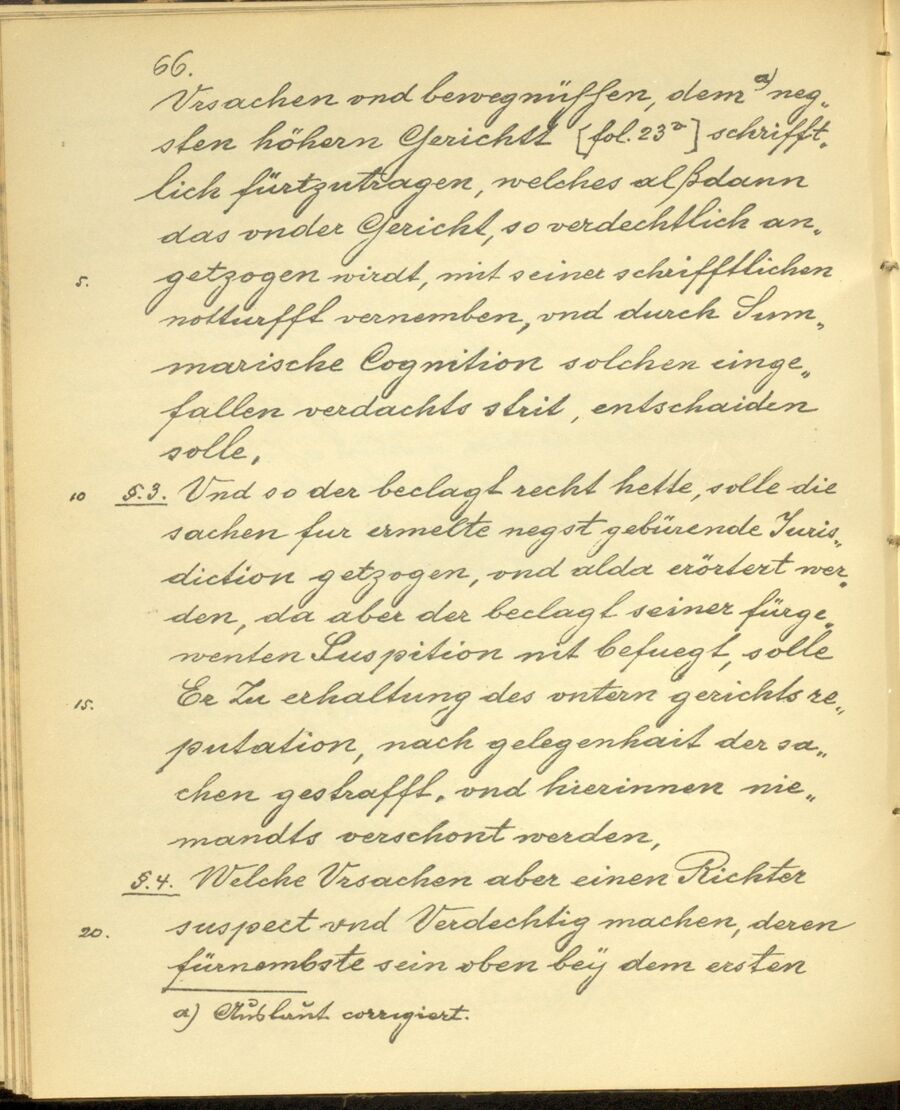 66.
Vrsachen vnd bewegnüssen, dem a) neg„
sten höhern Gerichtt [fol. 23a] schrifft„
lich fürtzutragen, welches alßdann
das vnder Gericht, so verdechtlich an„
5. getzogen wirdt, mit seiner schrifftlichen
notturfft vernemben, vnd durch Sum„
marische Cognition solchen einge„
fallen verdachts strit, entschaiden
solle.
10 §.3. Vnd so der beclagt recht hette, solle die
sachen fur ermelte negst gebürende Juris„
diction getzogen, vnd alda erörtert wer„
den, da aber der beclagt seiner fürge„
wenten Suspition nit befuegt, solle
15. Er Zu erhaltung des vntern gerichts re„
putation, nach gelegenhait der sa„
chen gestrafft, vnd hierinnen nie„
mandts verschont werden,
§.4. Welche Vrsachen aber einen Richter
20. suspect vnd Verdechtig machen, deren
fürnembste sein oben beÿ dem ersten
a) Auslaut corrigiert.